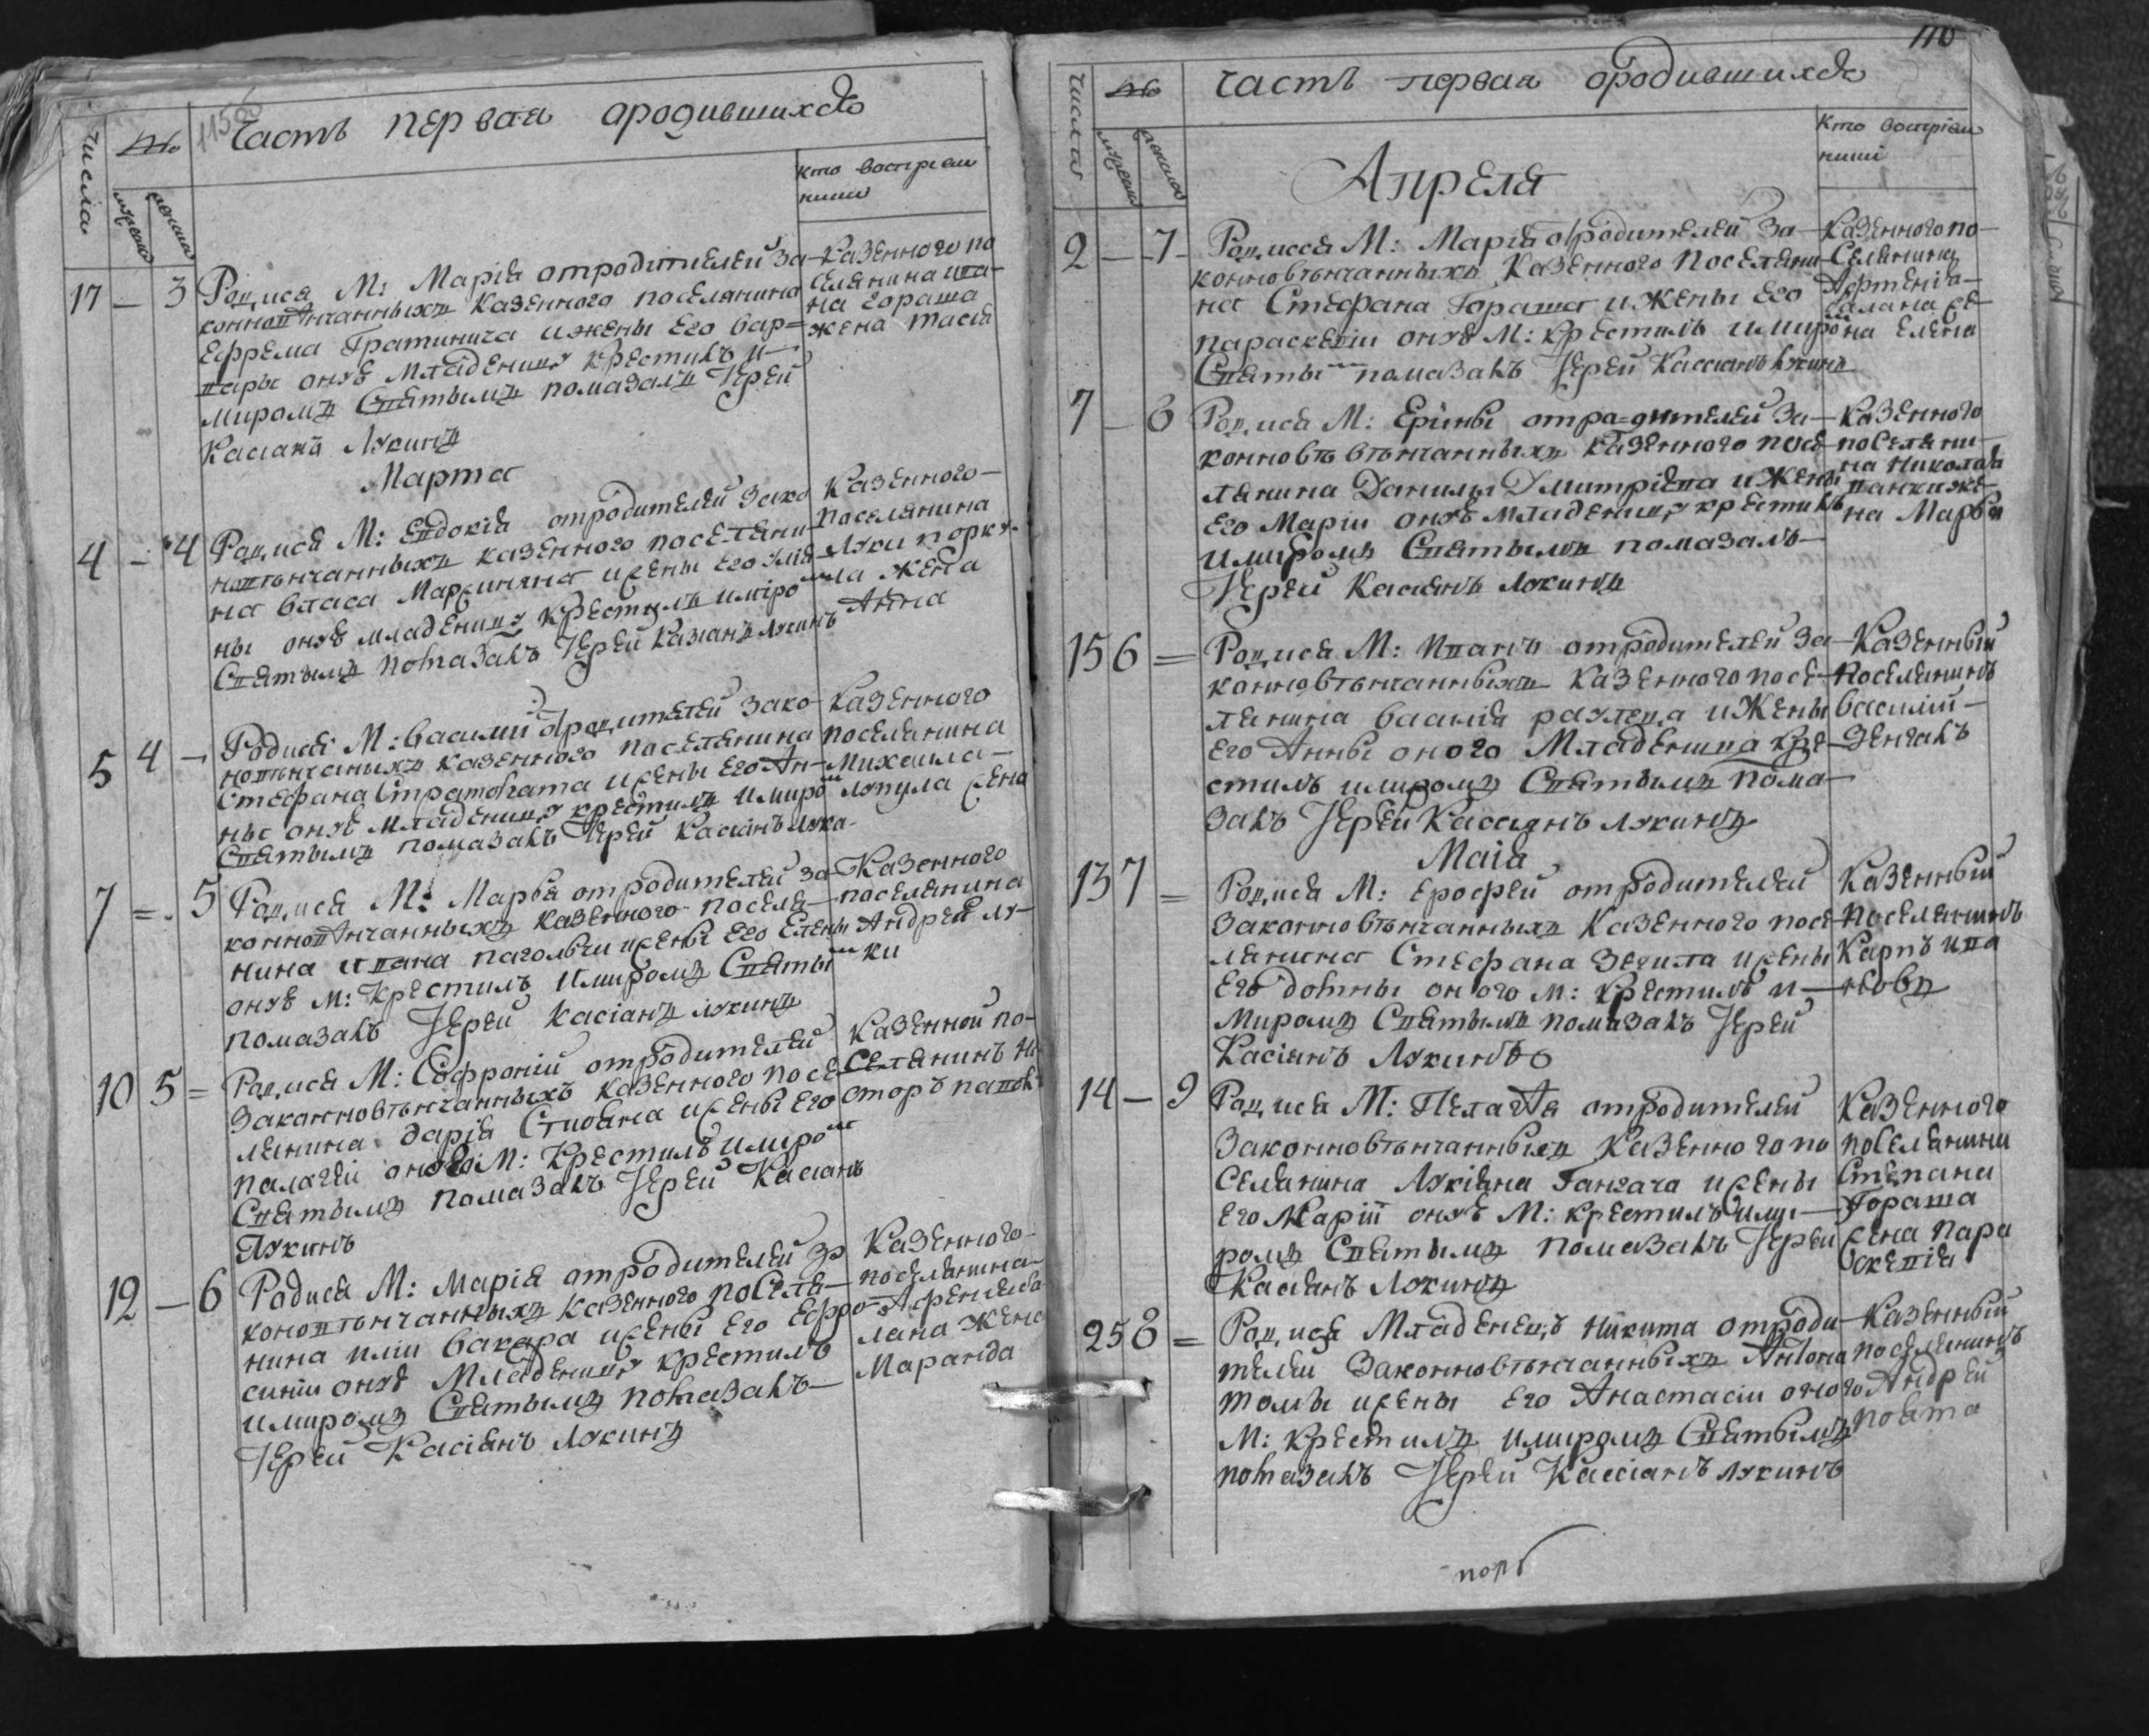 Часть первая ородившихся
числа
№
мужеска
женска
кто восприем
ники
17 — 3
Родися М: Марія отродителей за
конновѣнчанныхъ казенного поселянина
Ефрема Гратинича ижены Его вар=
вары онуѣ младеницу крестилъ и
миромъ Святымъ помазалъ Іерей
Касианъ Лукинъ
казенного по
селянина ива
на гораша
жена тасія
Марта
4 — 4
Родися М: Евдокія отродителей зако
новѣнчанныхъ казенного поселяни
на власа Марциняна ижены Его Улія
ны онуѣ младеницу крестилъ имиро
Святымъ помазалъ Іерей Касианъ лукинъ
Казенного
поселянина
луки порку
ла жена
Анна
5 4 —
Родися М: василій отродителей зако
новѣнчаныхъ казенного поселянина
Стефана Стратолата ижены Его Ан
ны онуѣ младеницу крестилъ имиро
Святымъ помазалъ Іерей Касіанъ лука
Казенного
поселянина
Михаила
лупула жена
7 = 5
Родися М: Марѳа отродителей за
конновѣнчанныхъ казенного поселя
нина ивана паголычи ижены Его Елены
онуѣ м: Крестилъ имиромъ Святы
помазалъ Іерей Касіанъ лукинъ
Казенного
поселянина
Андрей лу
ки
10 5 =
Родися М: Софроній отродителей
Законновѣнчанныхъ казенного посе
лянина дарія Стиѳана ижены Его
палагеи онуѣ М: Крестилъ имиро
Святымъ помазалъ Іерей Касианъ
Лукинъ
Казенной по
селянинъ не
сторъ
12 — 6
Родися М: Марія отродителей за
коновѣнчанныхъ казенного поселя
нина иліи вакара ижены Его Ефро
синіи онуѣ Младеницу крестилъ
имиромъ Святымъ помазалъ
Іерей Касіянъ Лукинъ
Казенного
поселянина
лана жена
Маранда
110
Часть первая ородившихся
числа
№
мужеска
женска
Кто восприем
ники
Апреля
2 — 7
Родисся М: Марія отродителей за
конновѣнчанныхъ Казенного Поселяни
на Стефана Гораша иЖены Его
параскевіи онуѣ М: крестилъ имиро
Святы помазалъ Іерей Кассианъ Лукинъ
Казенного по
Селянина
Афтенія
жена Елена
7 — 8
Родися М: Ерины отра=дителей за
конновъ вѣнчанныхъ казенного посе
лянина Данилы Дмитріева иЖены
его Маріи онуѣ младеницу крестилъ
имиромъ Святымъ помазалъ
Іерей Касиянъ лукинъ
Казенного
поселяни
на Николая
на Марѳа
15 6 =
Родися М: Иванъ отродителей за
конновѣнчанныхъ казенного посе
лянина василія раулеца иЖены
его Анны оного Младеница кре
стилъ имиромъ Святымъ пома
залъ Іерей Кассиянъ лукинъ
Казенный
поселянинъ
василій
Зенгалъ
Маія
13 7 =
Родися М: Ерофей отродителей
законновѣнчанныхъ Казенного посе
лянина Стефана Зегила ижены
Его домны оного м: крестилъ и
миромъ Святымъ помазалъ Іерей
Касіянъ Лукинъ
Казенный
поселянинъ
Карпъ ива
новъ
14 — 9
Родися М: Пелагѣя отродителей
Законновѣнчанныхъ казенного по
Селянина Лукіяна Гангача ижены
Его Маріи онуѣ М: крестилъ ими
ромъ Святымъ помазалъ Іерей
Касиянъ Лукинъ
Казенного
поселянина
Степана
Гораша
жена пара
скевія
25 8 =
Родися Младенецъ Никита отроди
телей законновѣнчанныхъ Антона
томы ижены его Анастасіи оного
М: крестилъ имиромъ Святымъ
помазалъ Іерей Кассіанъ лукинъ
Казенный
поселянинъ
Андрей
повта